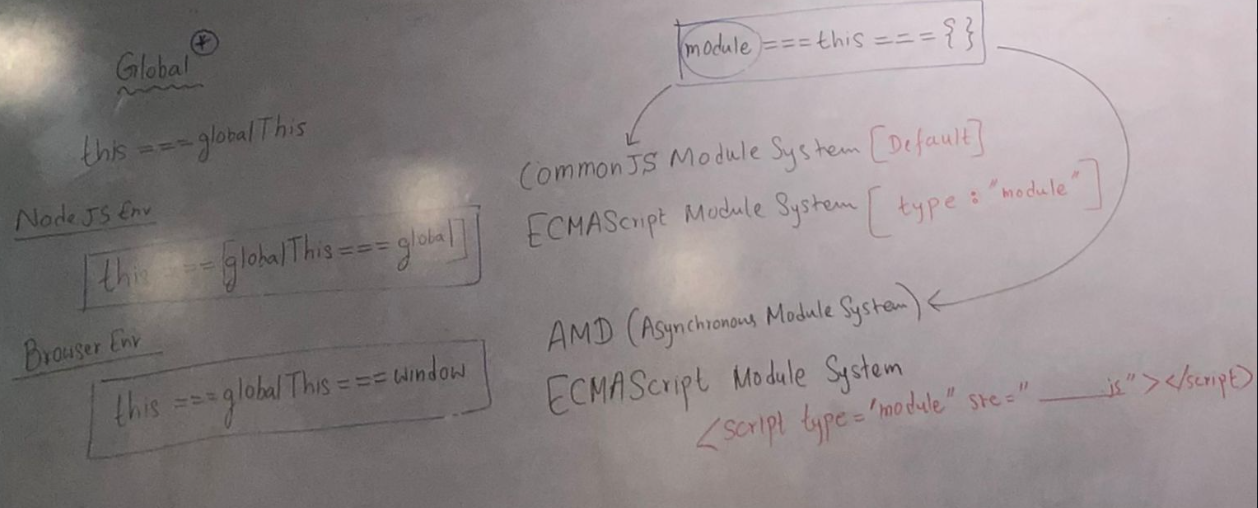 Global
this === globalThis
Node JS Env
this === [globalThis === global]
Browser Env
this === globalThis === window
module === this === {}
CommonJS Module System [Default]
ECMAScript Module System [type : "module"]
AMD (Asynchronous Module System)
ECMAScript Module System
<script type='module" src="____js"></script>